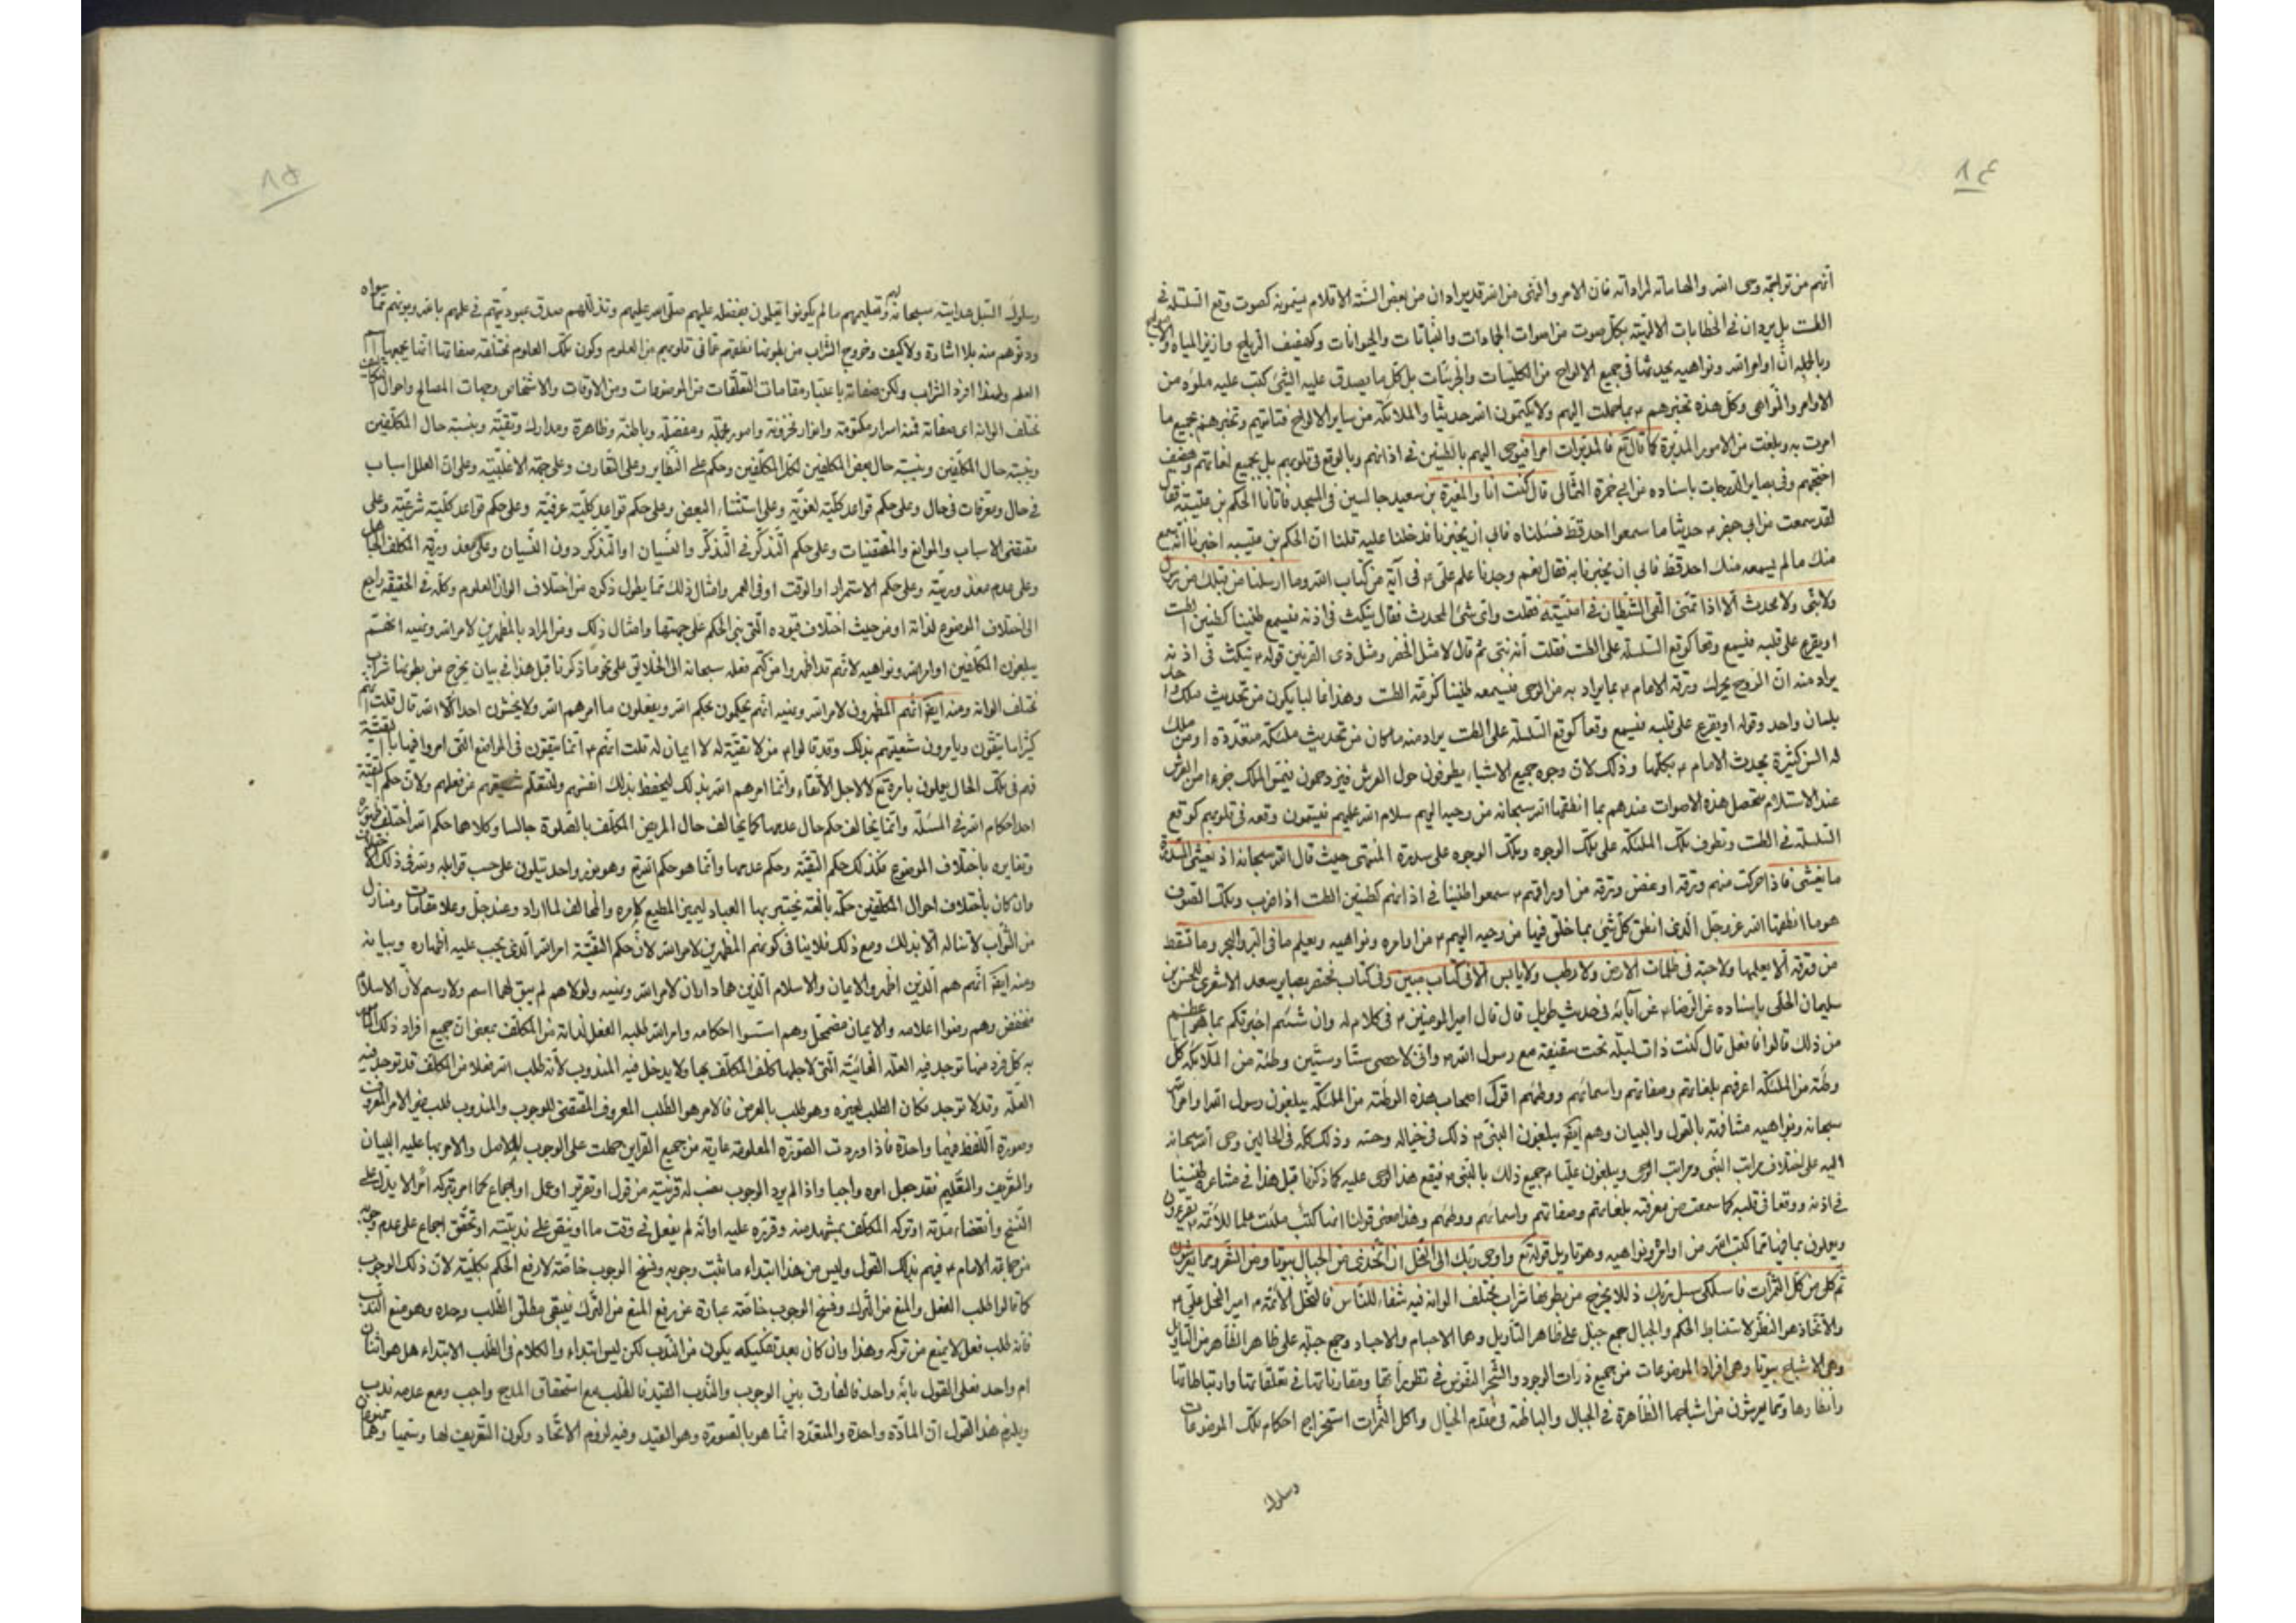 ٨٤
أنهم من تراجمة وحى الله والهاماته لمراداته فان الامر والنهى من الله قد يراد ان من بعض السنة الاقلام يسمونه كصوت وقع السلسلة فى
الطست بل يردان فى الخطابات الالهية بكل صوت من اصوات الجمادات والنباتات والحيوانات وكهفيف الرياح وازيز المياه والامواج
وبالجملة ان اوامر الله ونواهيه يجدثها فى جميع الالواح من الكليات والجزئيات بل كل ما يصدق عليه الشئ كتب عليه ملؤه من
الاوامر والنواهى وكل هذه تخبرهم ع بما حملت اليهم ولا يكتمون الله حديثا والملائكة من ساير الالواح فتاتيهم وتخبرهم بجميع ما
امرت به وبلغت من الامور المدبرة كما قال تع فالمدبرات امرا فيوحى اليهم بالطنين فى اذانهم وبالوقع فى قلوبهم بل بجميع لغاتهم وهفيف
اجنحتهم وفى بصاير الدرجات باسناده عن ابى حمزة الثمالى قال كنت انا والمغيرة بن سعيد جالسين فى المسجد فاتانا الحكم بن عتيبة فقال
لقد سمعت من ابى جعفر ع حديثا ما سمعه احد قط فسئلناه فابى ان يخبرنا فدخلنا عليه فقلنا ان الحكم بن عتيبه اخبرنا انه سمع
منك ما لم يسمعه منك احد قط فابى ان يخبرنا به فقال نعم وجدنا علم على ع فى آية من كتاب الله وما ارسلنا من قبلك من رسول
ولا نبى ولا محدث الا اذا تمنى القى الشيطان فى امنيته فقلت واى شئ المحدث فقال ينكث فى اذنه فيسمع طنينا كطنين الطست
او يقرع على قلبه فيسمع وقعا كوقع السلسلة على الطست فقلت أنه نبى ثم قال لا مثل الخضر ومثل ذى القرنين قوله ع ينكث فى اذنه
يراد منه ان الروح يحرك ورقة الامام ع بما يراد به من الوحى فيسمعه طنينا كرنة الطست وهذا غالبا يكون من تحديث ملك واحد
بلسان واحد وقوله او يقرع على قلبه فيسمع وقعا كوقع السلسلة على الطست يراد منه ما كان من تحديث ملئكة متعددة او من ملك
له السن كثيرة يحدث الامام ع بكلها وذلك لان وجوه جميع الاشياء يطوفون حول العرش فيزدحمون فيمس الملك جزءا من العرش
عند الاستلام فتحصل هذه الاصوات عندهم بما انطقها الله سبحانه من وحيه اليهم سلام الله عليهم فيسمعون وقعه فى قلوبهم كوقع
السلسلة فى الطست وتطوف تلك الملئكة على تلك الوجوه وتلك الوجوه على سدرة المنتهى حيث قال الله سبحانه اذ يغشى السدرة
ما يغشى فاذا حركت منهم ورقة او غصن ورقة من اوراقهم ع سمعوا طنينا فى اذانهم كطنين الطست اذا ضرب وتلك الصوت
هو ما انطقها الله عز وجل الذى انطق كل شئ بما خلق فيها من وحيه اليهم ع من اوامره ونواهيه ويعلم ما فى البر والبحر وما تسقط
من ورقة الا يعلمها ولا حبة فى ظلمات الارض ولا رطب ولا يابس الا فى كتاب مبين وفى كتاب مختصر بصاير سعد الاشعرى للحسن بن
سليمان الحلى باسناده عن الرضا ع عن آبائه فى حديث طويل قال قال امير المومنين ع فى كلام له وان شئتم اخبرتكم بما هو اعظم
من ذلك قالوا فافعل قال كنت ذات ليلة تحت سقيفة مع رسول الله ص وانى لاحصى ستا وستين وطئة من الملائكة كل
وطئة من الملئكة اعرفهم بلغاتهم وصفاتهم واسمائهم ووطئهم اقول اصحاب هذه الوطئة من الملئكة يبلغون رسول الله اوامر الله
سبحانه ونواهيه مشافهة بالقول والبيان وهم ايضا يبلغون النبى ص ذلك فى خياله وحسه وذلك كله فى الحالين وحى الله سبحانه
اليه على اختلاف مراتب النبى ومراتب الوحى ويبلغون عليا ع جميع ذلك بالنبى ص فيقع هذا الوحى عليه كما ذكرنا قبل هذا فى مشاعره طنينا
فى اذنه ووقعا فى قلبه كما سمعت من معرفته بلغاتهم وصفاتهم واسمائهم ووطئهم وهذا معنى قولنا انها كتب ملئت علما للائمة ع يقرءون
ويعملون بما فيها مما كتب الله من اوامره ونواهيه وهو تاويل قوله تع واوحى ربك الى النحل ان اتخذى من الجبال بيوتا ومن الشجر ومما يعرشون
ثم كلى من كل الثمرات فاسلكى سبل ربك ذللا يخرج من بطونها شراب مختلف الوانه فيه شفاء للناس فالنحل الائمة ع امير النحل على ع
والاتخاذ هو النظر لاستنباط الحكم والجبال جمع جبل على ظاهر التأويل وهما الاجسام والاجساد وجمع جبلة على ظاهر الظاهر من التاويل
وهى الاشباح بيوتا وهى افراد الموضوعات من جميع ذرات الوجود والشجر النفوس فى تطوراتها ومقارناتها فى تعلقاتها وارتباطاتها
وانظارها ومما يعرشون من اشباحها الظاهرة فى الجبال والباطنة فى مقدم الخيال واكل الثمرات استخراج احكام تلك الموضوعات
وسلوك
٨٥
وسلوك السبل هدايته سبحانه لهم وتعليمهم ما لم يكونوا يعلمون بفضله عليهم صلى الله عليهم وتذللهم صدق عبوديتهم فى علمهم بالله ويونهم عما سواه
ودنوهم منه بلا اشارة ولا كيف وخروج الشراب من بطونها نطقهم عما فى قلوبهم من العلوم وكون تلك العلوم مختلفة صفاتها انما يجمعها
العلم ولهذا افرد الشراب ولكن صفاته باعتبار مقامات التعلقات من الموضوعات ومن الاوقات والاشخاص وجهات المصالح واحوال المكلفين
مختلف الوانه اى صفاته فمنه اسرار مكتومة وانوار مخزونة وامور مجملة ومفصلة وباطنة وظاهرة ومدارك وتقية وبنسبة حال المكلفين
وبنسبة حال المكلفين وبنسبة حال بعض المكلفين لكل المكلفين وحكم على النظاير وعلى التعارف وعلى جهة الاغلبية وعلى ان العلل اسباب
فى حال ومعرفات فى حال وعلى حكم قواعد كلية لغوية وعلى استثناء البعض وعلى حكم قواعد كلية عرفية وعلى حكم قواعد كلية شرعية وعلى
مقتضى الاسباب والموانع والمقتضيات وعلى حكم التذكر فى التذكر والنسيان او التذكر دون النسيان وعلى معذورية المكلف الجاهل
وعلى عدم معذوريته وعلى حكم الاستمرار او الوقت او فى العمر وامثال ذلك مما يطول ذكره من اختلاف الوان العلوم وكله فى الحقيقة راجع
الى اختلاف الموضوع لذاته او من حيث اختلاف قيوده التى بنى الحكم على جهتها وامثال ذلك ومن المراد بالمظهرين لامر الله ونهيه انهم
يبلغون المكلفين اوامر الله ونواهيه لانهم قد اظهروا من كتم فعله سبحانه الى الخلايق على نحو ما ذكرنا قبل هذا فى بيان يخرج من بطونها شراب
مختلف الوانه ومنه ايضا انهم المظهرون لامر الله ونهيه انهم يحكمون بحكم الله ويفعلون ما امرهم الله ولا يخشون احدا الا الله فان قلت انهم
كثيرا ما يتقون ويامرون شعيتهم بذلك وقد قالوا ع من لا تقية له لا ايمان له قلت انهم ع انما يتقون فى المواضع التى امروا فيها بالتقية
فهم فى تلك الحال يعملون بامره تع لا لاجل الاتقاء وانما امرهم الله بذلك ليحفظ بذلك انفسهم ولتتعلم شيعتهم من فعلهم ولان حكم التقية
احد احكام الله فى المسئلة وانما يخالف حكم حال عدمها كما يخالف حال المريض المكلف بالصلوة جالسا وكلاهما حكم الله اختلف ظهوره
وتغايره باختلاف الموضوع فكذلك حكم التقية وحكم عدمها وانما هو حكم الله تع وهو نور واحد يتلون على حسب قوابله ويسر فى ذلك الاختلاف
وان كان باختلاف احوال المكلفين حكمة بالغة يختبر بها العباد ليميز المطيع لامره والمخالف لما اراد وعند جل وعلا مقامات ومنازل
من الثواب لا تنال الا بذلك ومع ذلك فلا ينافى كونهم المظهرين لامر الله لان حكم التقية امر الله الذى يجب عليه اظهاره وبيانه
ومنه ايضا انهم هم الذين اظهروا الايمان والاسلام الذين هما داران لامر الله ونهيه ولولاهم لم يبق لهما اسم ولا رسم لان الاسلام
منخفض وهم رفعوا اعلامه والايمان مضمحل وهم اسسوا احكامه وامر الله طلبه الفعل لذاته من المكلف بمعنى ان جميع افراد ذلك المامور
به كل فرد منها توجد فيه العلة الغائية التى لاجلها كلف المكلف بها ولا يدخل فيه المندوب لانه طلب الله فعلا من المكلف قد توجد فيه
العلة وقد لا توجد فكان الطلب لغيره وهو طلب بالعرض فالامر هو الطلب المعروف المقتضى للوجوب والمندوب طلب بغير الامر المعروف
وصورة اللفظ فيهما واحدة فاذا وردت الصورة المعلومة عارية من جميع القراين حملت على الوجوب للاصل والامر بها عليه البيان
والتعريف والتعليم فقد جعل امره واجبا واذا لم يرد الوجوب نصب له قرينة من قول او تقرير او عمل او اجماع كما امر بتركه امرا لا يدل على
النسخ وانقضاء مدته او تركه المكلف بمشهد منه وقرره عليه او انه لم يفعل فى وقت ما او ينص على ندبيته او تحقق اجماع على عدم وجوبه
من جماعة الامام ع فيهم بذلك القول وليس من هذا ابتداء ما ثبت وجوبه ونسخ الوجوب خاصة لا رفع الحكم بكليته لان ذلك الوجوب
كما قالوا طلب الفعل والمنع من الترك ونسخ الوجوب خاصة عبارة عن رفع المنع من الترك فيبقى مطلق الطلب وحده وهو منع الندب
فانه طلب فعل لا يمنع من تركه وهذا وان كان بعد تفكيكه يكون من الندب لكن ليس ابتداء والكلام فى الطلب الابتداء هل هو اثنان
ام واحد فعلى القول بانه واحد فالفارق بين الوجوب والندب القيد فالطلب مع استحقاق المدح واجب ومع عدمه ندب
ويلزم هذا القول ان المادة واحدة والمتعدد انما هو بالصورة وهو القيد وفيه لزوم الاتحاد وكون التعريف لها وسميا وهما